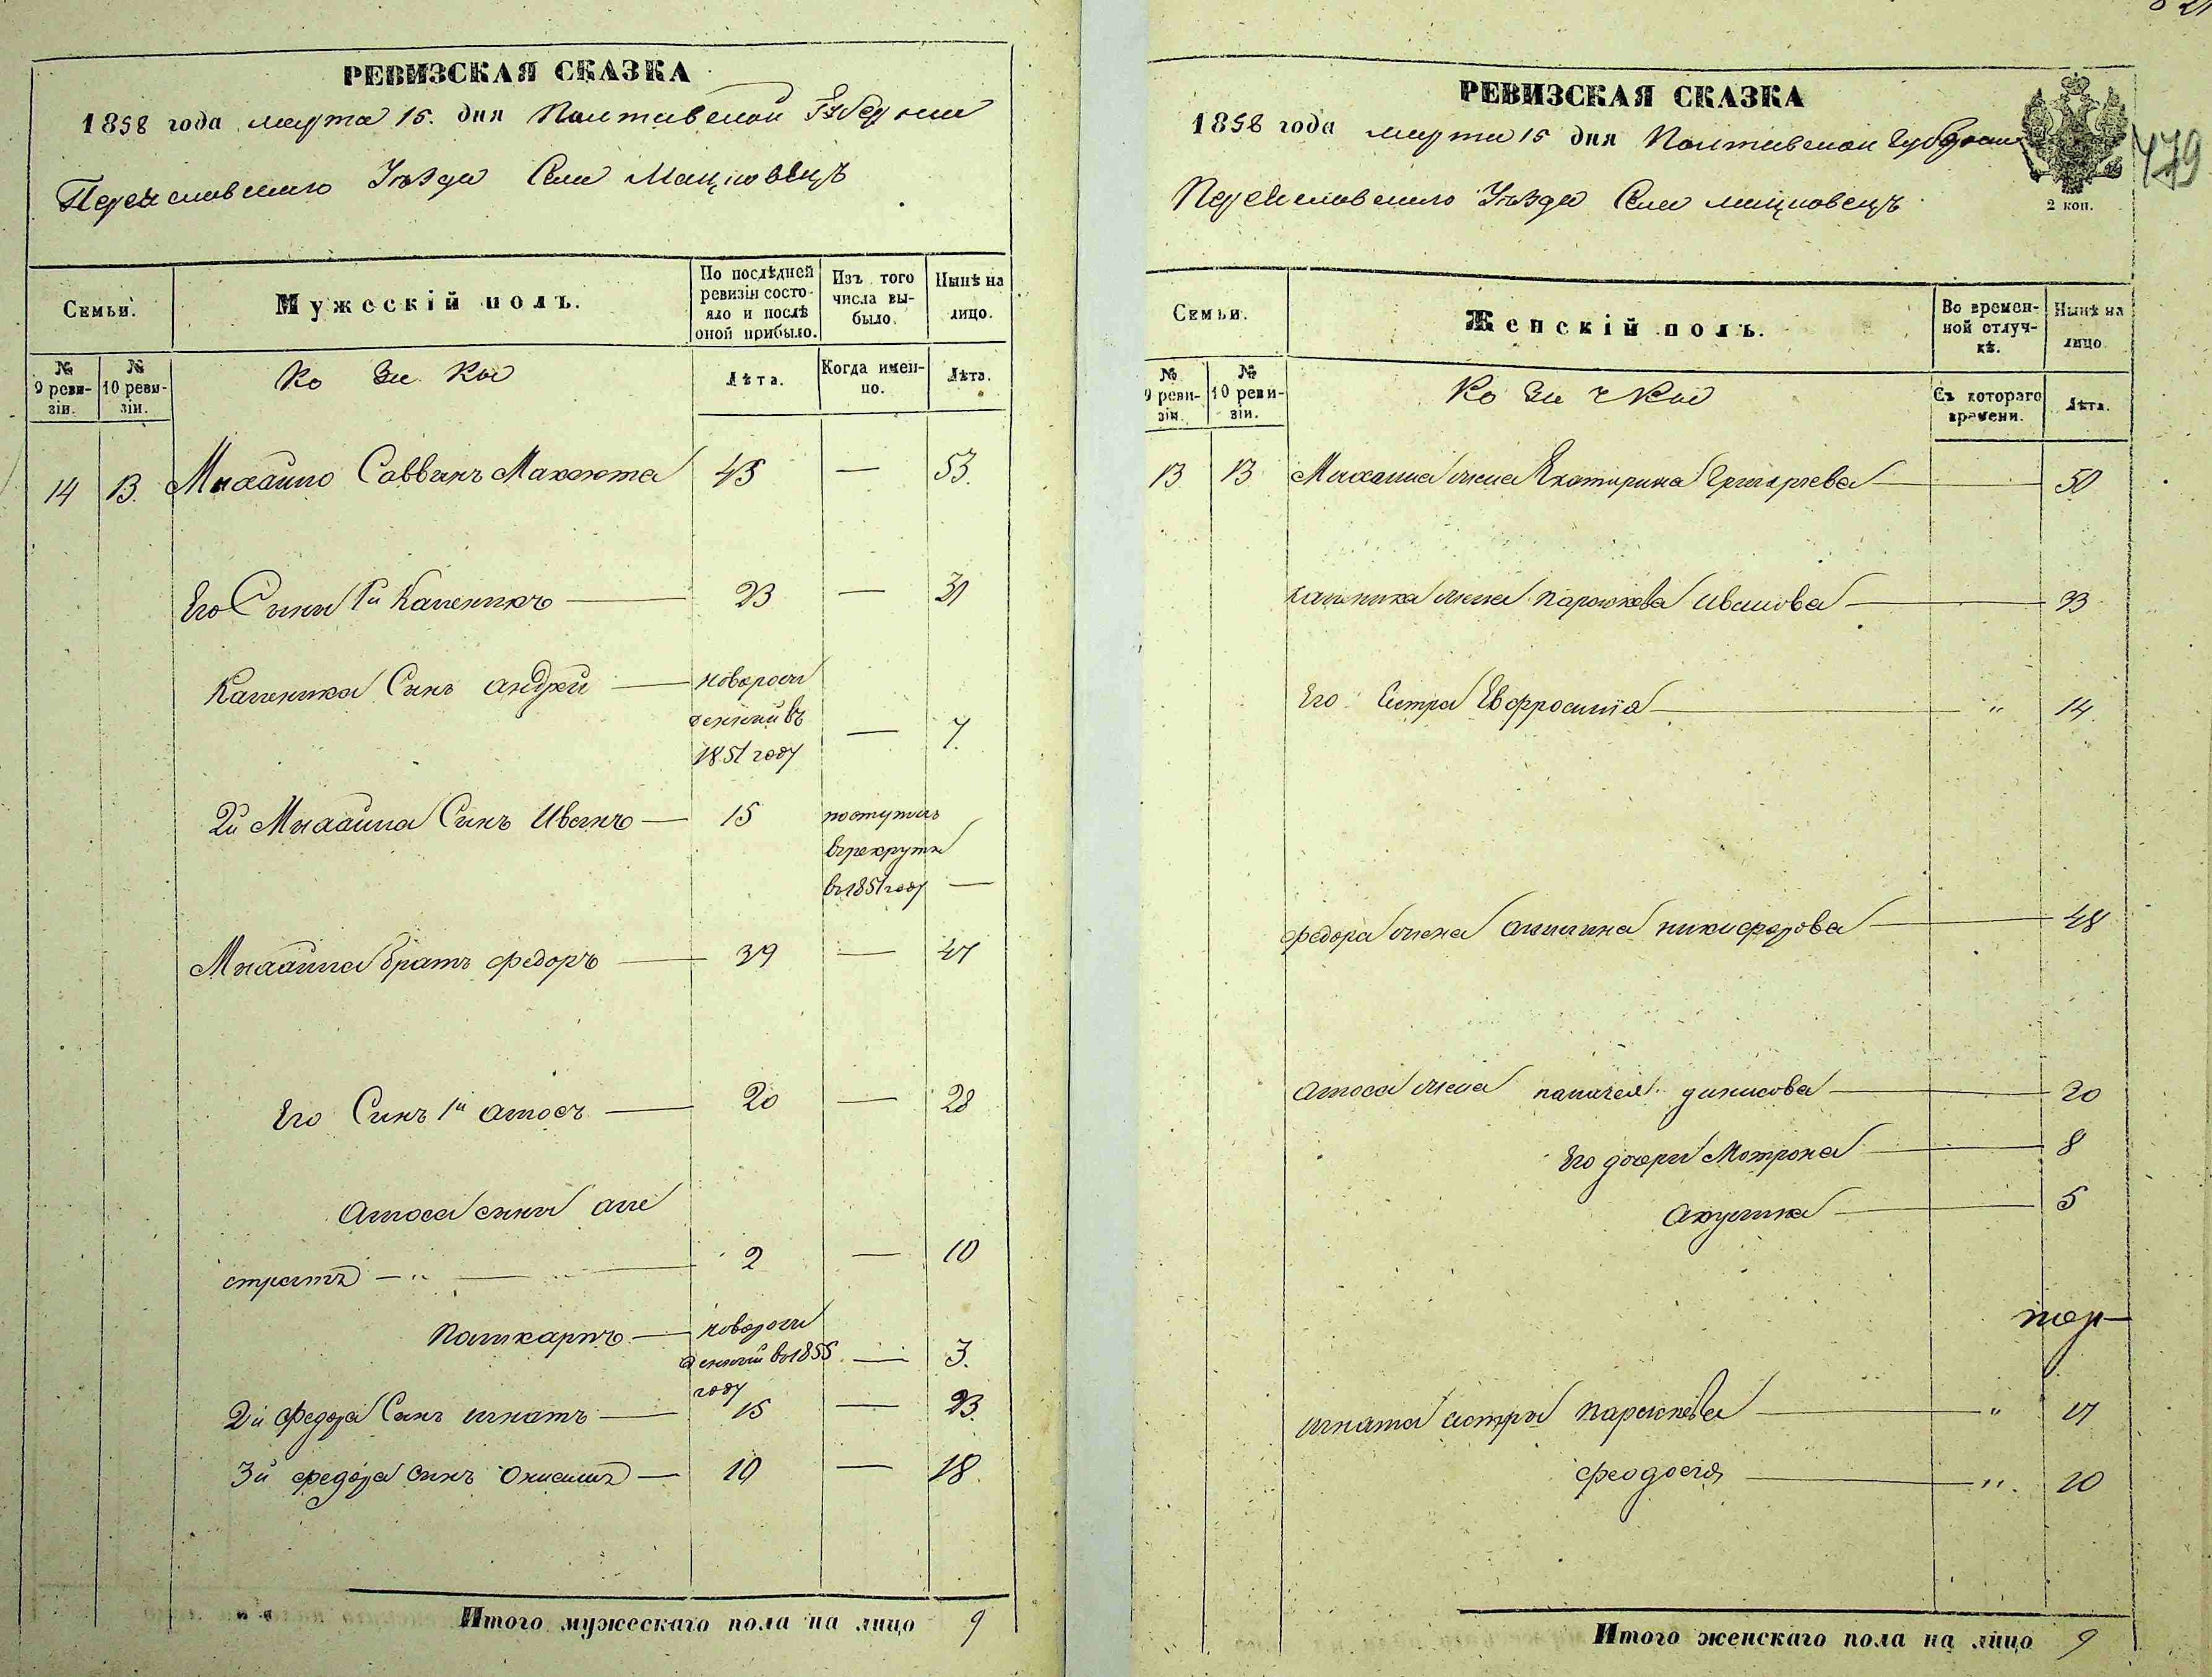 РЕВИЗСКАЯ СКАЗКА
1858 года марта 15. дня Полтавской Губернии
Переяславскаго Уѣзда Села Мацковецъ
Семьи.
Мужескій полъ.
По послѣдней ревизіи состояло и послѣ оной прибыло.
Изъ того числа выбыло.
Нынѣ на лицо.
№ 9 ревизіи.
№ 10 ревизіи.
Ко за ки
Лѣта.
Когда именно.
Лѣта.
14 13. Михайло Саввинъ Махоюта 45 — 53.
Его Сыны 1й Каленикъ 23 — 31
Каленика Сынъ андрей новорож
денный въ
1851 году — 7.
2й Михайла Сынъ Иванъ 15 поступилъ
в рекруты
в 1851 году —
Михайла братъ федоръ 39 — 47
Его Синъ 1й амосъ 20 — 28
Амоса сины али
стратъ 2 — 10
Поликарпъ новорож
денный во 1855 — 3.
году
2й федора Сынъ игнатъ 15 — 23.
3й федора синъ Онисимъ 10 — 18.
Итого мужескаго пола на лицо 9
РЕВИЗСКАЯ СКАЗКА
1858 года марта 15 дня Полтавской Губернии
Переяславскаго Уѣзда Села мацковецъ
2 коп.
479
Семьи.
Женскій полъ.
Во временной отлучкѣ.
Нынѣ на лицо
№ 9 ревизіи.
№ 10 ревизіи.
Ко за чки
Съ котораго времени.
Лѣта.
13 13 Михаила жена Екатирина Григорьева 50
каленика жена параскева иванова 33
Его Сестра Евфросинія " 14.
федора жена никифорова 48
амоса жена пелагея динисова 20
Его дочери Мотрона 8
Акулина 5
игната сестры параскева " 17
феодосія " 10
Итого женскаго пола на лицо 9